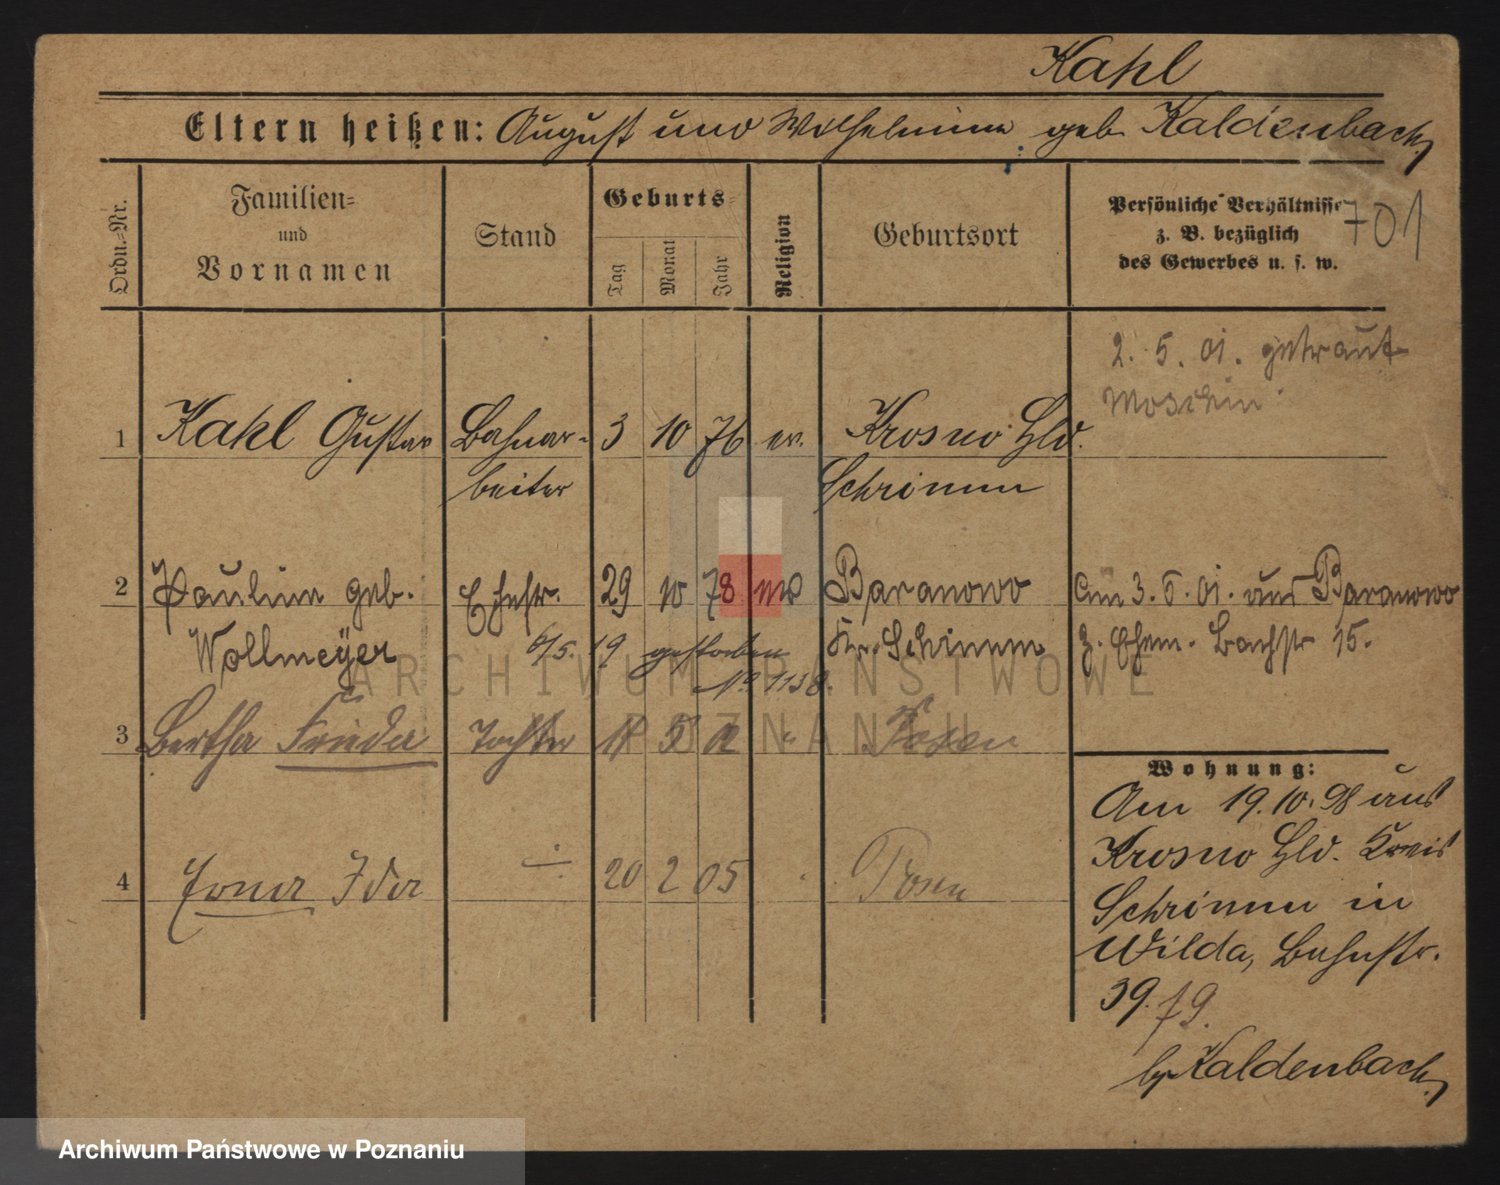 Kahl
Eltern heißen: August und Wilhelmine geb Kaldenbach
Ordn.-Nr.
Familien-
und
Vornamen
Stand
Geburts-
Tag
Monat
Jahr
Religion
Geburtsort
Persönliche Verhältnisse
z. B. bezüglich
des Gewerbes u. s. w.
701
2. 5. 01. getraut
Moschin
1 Kahl Gustav Bahnar- 3 10 76 ev. Krosno Hld.
beiter Schrimm
2 Pauline geb. Ehefr. 29 10 78 Baranowo Am 3.5.01. aus Baranowo
Wollmeyer Kr. Schrimm z. Ehem. Bachstr 15.
6/5. 19 gestorben
No 1138.
3 Bertha Frieda Tochter 5 Posen
4 Erna Ida 20 2 05 Posen
Wohnung:
Am 19.10.98 aus
Krosno Hld. Kreis
Schrimm in
Wilda, Bahnstr.
39.
b/ Kaldenbach
ARCHIWUM PAŃSTWOWE
W POZNANIU
Archiwum Państwowe w Poznaniu